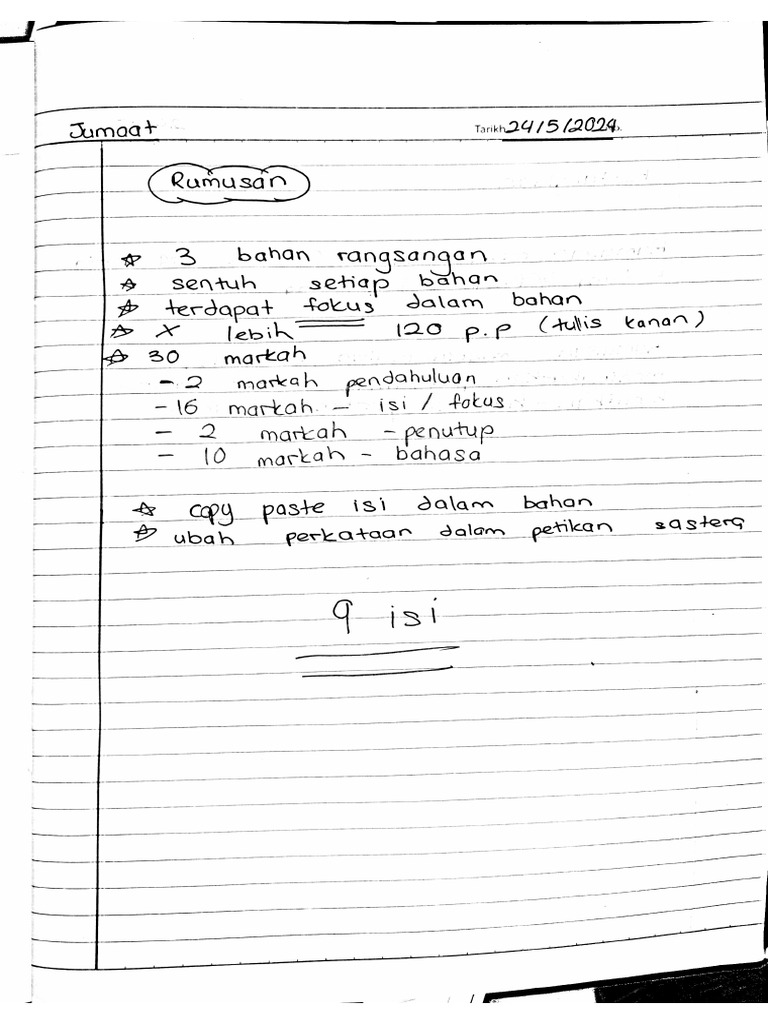 Jumaat Tarikh 24/5/2024
Rumusan
☆ 3 bahan rangsangan
☆ sentuh setiap bahan
☆ terdapat fokus dalam bahan
☆ X lebih 120 p.p (tulis kanan)
☆ 30 markah
- 2 markah pendahuluan
- 16 markah - isi / fokus
- 2 markah - penutup
- 10 markah - bahasa
☆ copy paste isi dalam bahan
☆ ubah perkataan dalam petikan sastera
9 isi